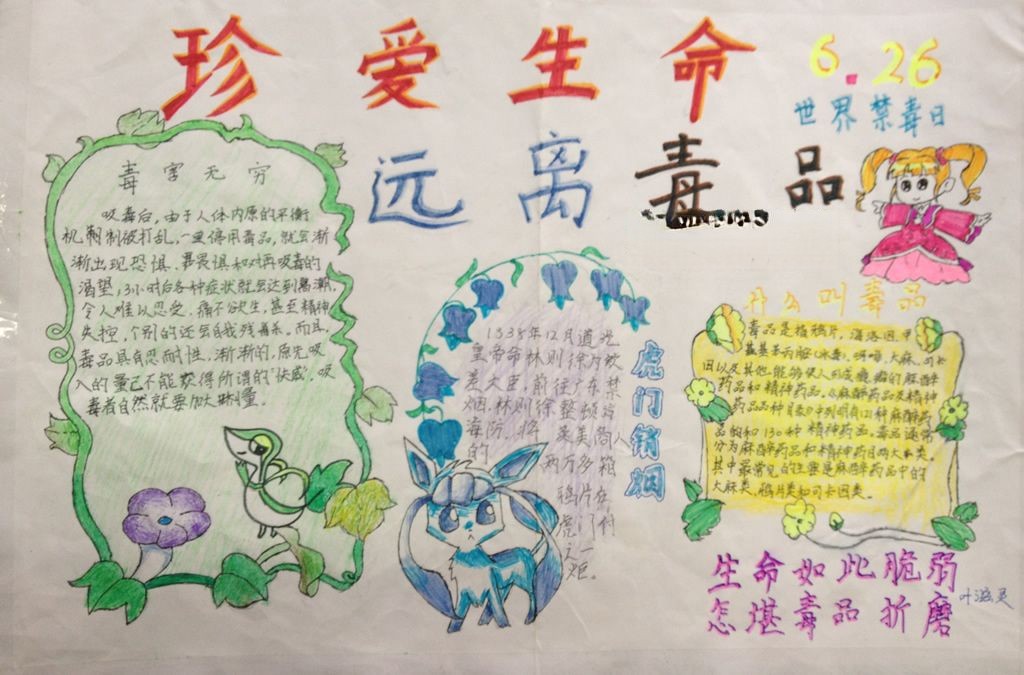 珍爱生命
远离毒品
6.26
世界禁毒日
毒害无穷
吸毒后,由于人体内原的平衡
机制制被打乱,一旦停用毒品,就会渐
渐出现恐惧、畏惧和对再吸毒的
渴望,3小时后各种症状就会达到高潮,
令人难以忍受,痛不欲生,甚至精神
失控,个别的还会自我残杀。而且,
毒品具有忍耐性,渐渐的,原先吸
入的量已不能获得所谓的“快感”,吸
毒者自然就要加大剂量。
1838年12月道光
皇帝命林则徐为钦
差大臣,前往广东禁
烟。林则徐整顿
海防,将英美商人
的两万多箱
鸦片在
虎门付
之一
炬。
虎门销烟
什么叫毒品
毒品是指鸦片,海洛因,甲
基苯丙胺(冰毒),吗啡,大麻,可卡
因以及其他能够使人形成瘾癖的麻醉
药品和精神药品。《麻醉药品及精神
药品品种目表》中列明有121种麻醉药
品的和130种精神药品。毒品通常
分为麻醉药品和精神药品两大类。
其中最常见的主要是麻醉药品中的
大麻类,鸦片类和可卡因类。
生命如此脆弱
怎堪毒品折磨